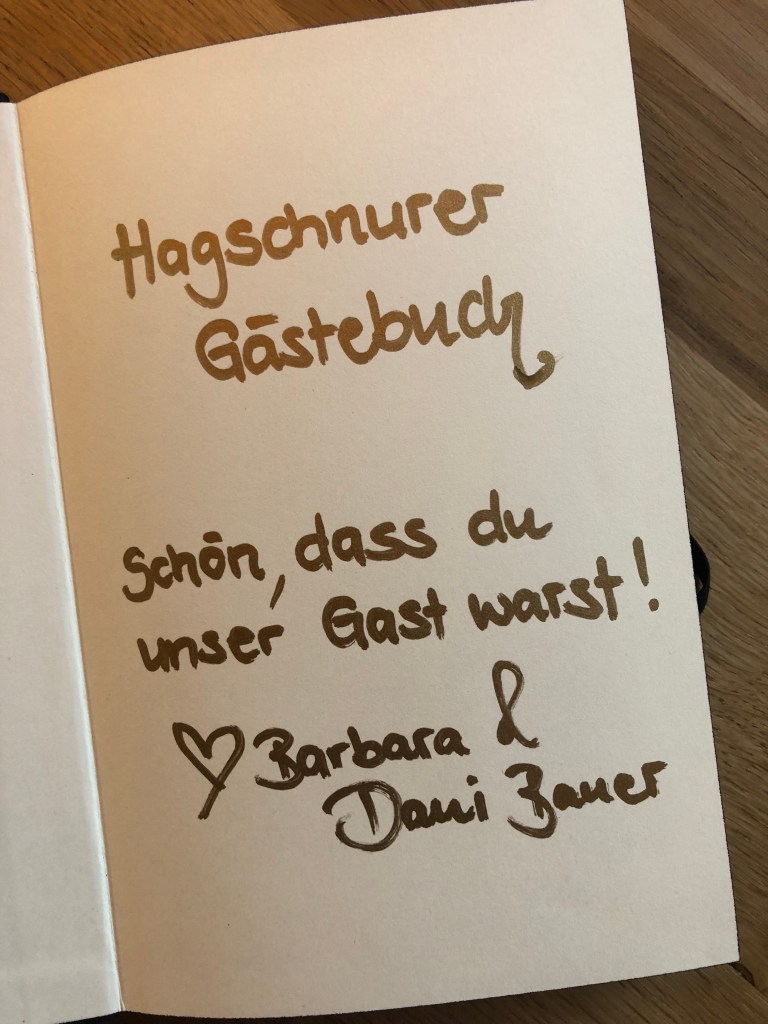 Hagschnurer
Gästebuch
Schön, dass du
unser Gast warst!
♡ Barbara &
Dani Bauer